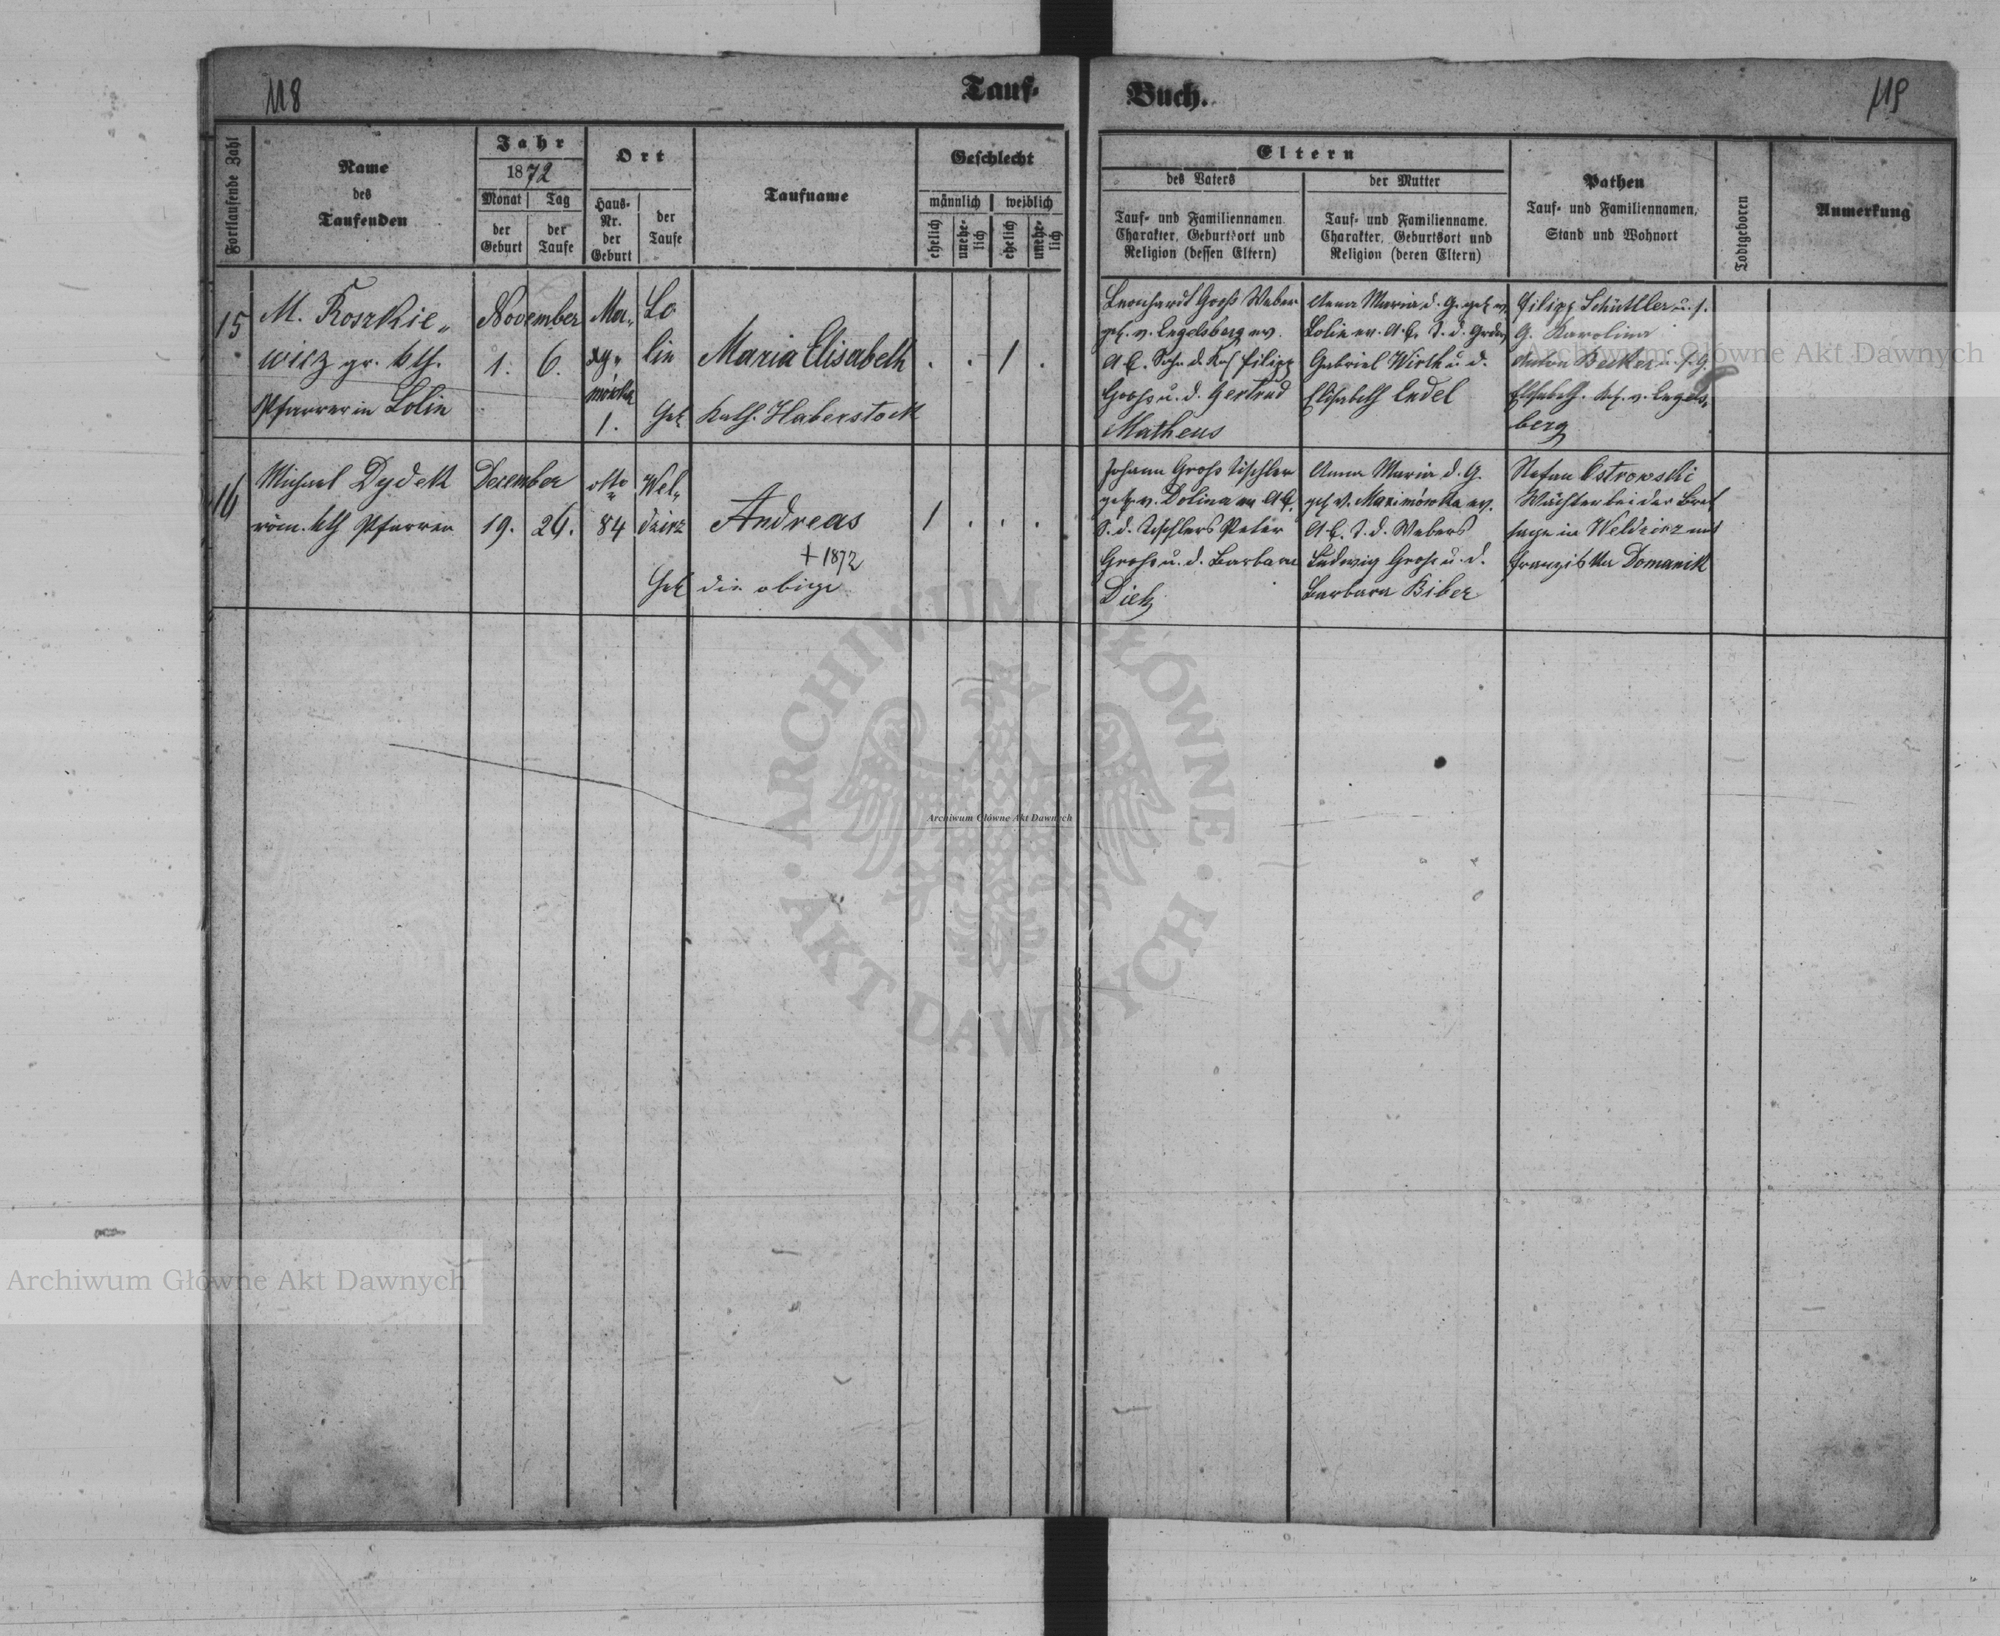 118
Tauf-
Buch.
119
Fortlaufende Zahl
Name
des
Taufenden
Jahr
1872
Monat
Tag
der
Geburt
der
Taufe
Ort
Haus-
Nr.
der
Geburt
der
Taufe
Taufname
Geschlecht
männlich
weiblich
ehelich
unehe-
lich
ehelich
unehe-
lich
Eltern
des Vaters
Tauf- und Familiennamen,
Charakter, Geburtsort und
Religion (dessen Eltern)
der Mutter
Tauf- und Familienname,
Charakter, Geburtsort und
Religion (deren Eltern)
Pathen
Tauf- und Familiennamen,
Stand und Wohnort
Todtgeboren
Anmerkung
15
M. Roszkie„
wicz gr. kth.
Pfarrer in Lolin
November
1. 6.
1.
Lo
lin
Maria Elisabeth
Geb. Kath. Haberstock
. . 1 .
Leonhard Groß Weber
geb. v. Engelsberg ev.
A. C. Sohn d. Filipp
Groß u. d. Gertrud
Matheus
Anna Maria d. G. geb. v.
Lolin ev. A. C. T. d.
Gabriel Wirth u. d.
Elisabeth Endel
Filipp Schüttler u. s.
G. Karolina
Anton Becker u. s. G.
Elisabeth v. Engels„
berg
16
Michael Dydek
röm. kth Pfarrer
December
19. 26.
84
Wel„
dzirz
Andreas
+ 1872
Geb. die obige
1 . . .
Johann Groß Tischler
geb. v. Dolina ev A C.
S. d. Tischlers Peter
Groß u. d. Barbara
Dietz
Anna Maria d. G.
geb. v. Maximówka ev.
A C. T. d. Webers
Ludwig Groß u. d.
Barbara Biber
Stefan Ostrowski
Wächter bei der Bret
säge in Weldzirz und
Franziska Domanik
ARCHIWUM GŁÓWNE AKT DAWNYCH
Archiwum Główne Akt Dawnych
Archiwum Główne Akt Dawnych
Archiwum Główne Akt Dawnych